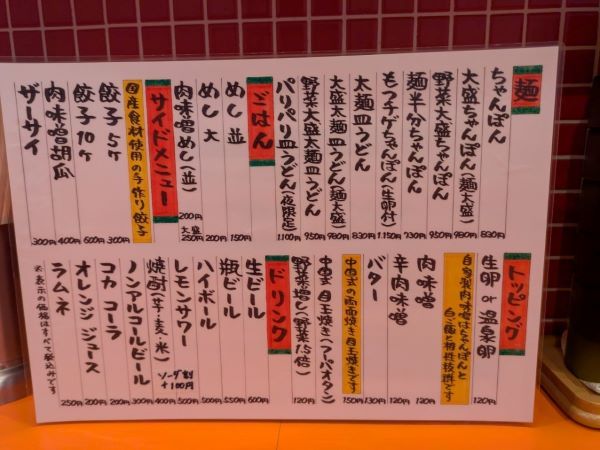 麺
ちゃんぽん 830円
大盛ちゃんぽん(麺大盛) 980円
野菜大盛ちゃんぽん 950円
麺半分ちゃんぽん 730円
もつチゲちゃんぽん(生卵付) 1,150円
太麺皿うどん 830円
大盛太麺皿うどん(麺大盛) 980円
野菜大盛太麺皿うどん 950円
パリパリ皿うどん(夜限定) 1,100円
ごはん
めし 並 150円
めし 大 200円
肉味噌めし(並) 200円
大盛 250円
サイドメニュー
国産食材使用の手作り餃子
餃子 5ヶ 300円
餃子 10ヶ 600円
肉味噌胡瓜 400円
ザーサイ 300円
トッピング
生卵 or 温泉卵 120円
自家製肉味噌はちゃんぽんと
白ご飯と相性抜群です
肉味噌 120円
辛肉味噌 120円
バター 130円
中国式の両面焼き目玉焼きです
中国式 目玉焼き(フーパオタン) 150円
野菜増し(野菜1.5倍) 120円
ドリンク
生ビール 600円
瓶ビール 550円
ハイボール 500円
レモンサワー 500円
焼酎(芋・麦・米) 400円
ソーダ割
+100円
ノンアルコールビール 300円
コカ コーラ 200円
オレンジ ジュース 200円
ラムネ 250円
※表示の価格はすべて税込みです